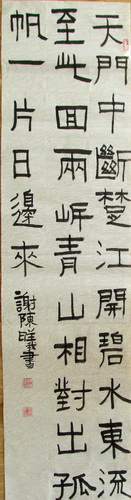 天門中斷楚江開碧水東流
至此回兩岸青山相對出孤
帆一片日邊來
謝陳曦書